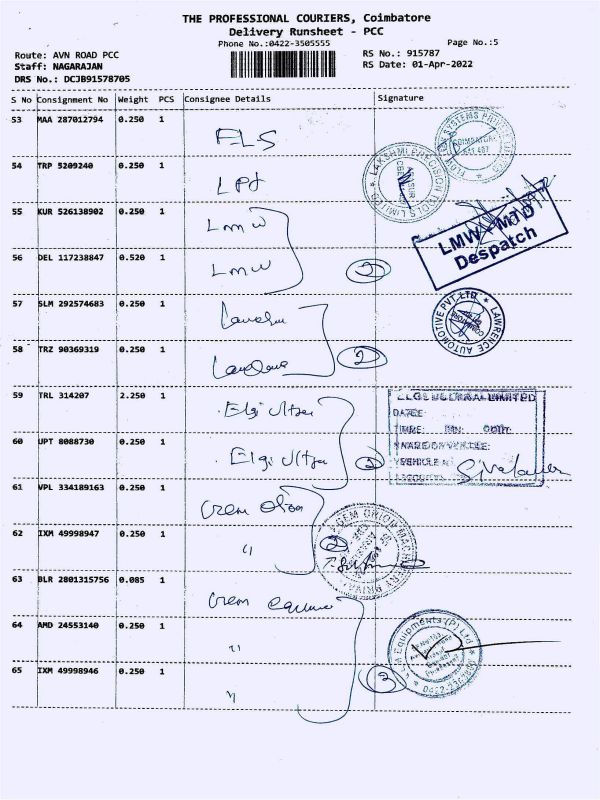 THE PROFESSIONAL COURIERS, Coimbatore
Delivery Runsheet - PCC
Phone No.:0422-3505555
Page No.:5
Route: AVN ROAD PCC
RS No.: 915787
Staff: NAGARAJAN
RS Date: 01-Apr-2022
DRS No.: DCJB91578705
S No Consignment No Weight PCS Consignee Details Signature
53 MAA 287012794 0.250 1
54 TRP 5209240 0.250 1
55 KUR 526138902 0.250 1 LMW
56 DEL 117238847 0.520 1 LMW 2
LMW - MTD
Despatch
57 SLM 292574683 0.250 1
LAWRENCE AUTOMOTIVE PVT LTD
58 TRZ 90369319 0.250 1 2
59 TRL 314207 2.250 1 Elgi Ultra
60 UPT 8088730 0.250 1 Elgi Ultra 2
61 VPL 334189163 0.250 1
62 IXM 49998947 0.250 1 " 2
63 BLR 2801315756 0.085 1
64 AMD 24553140 0.250 1 "
65 IXM 49998946 0.250 1 " 3